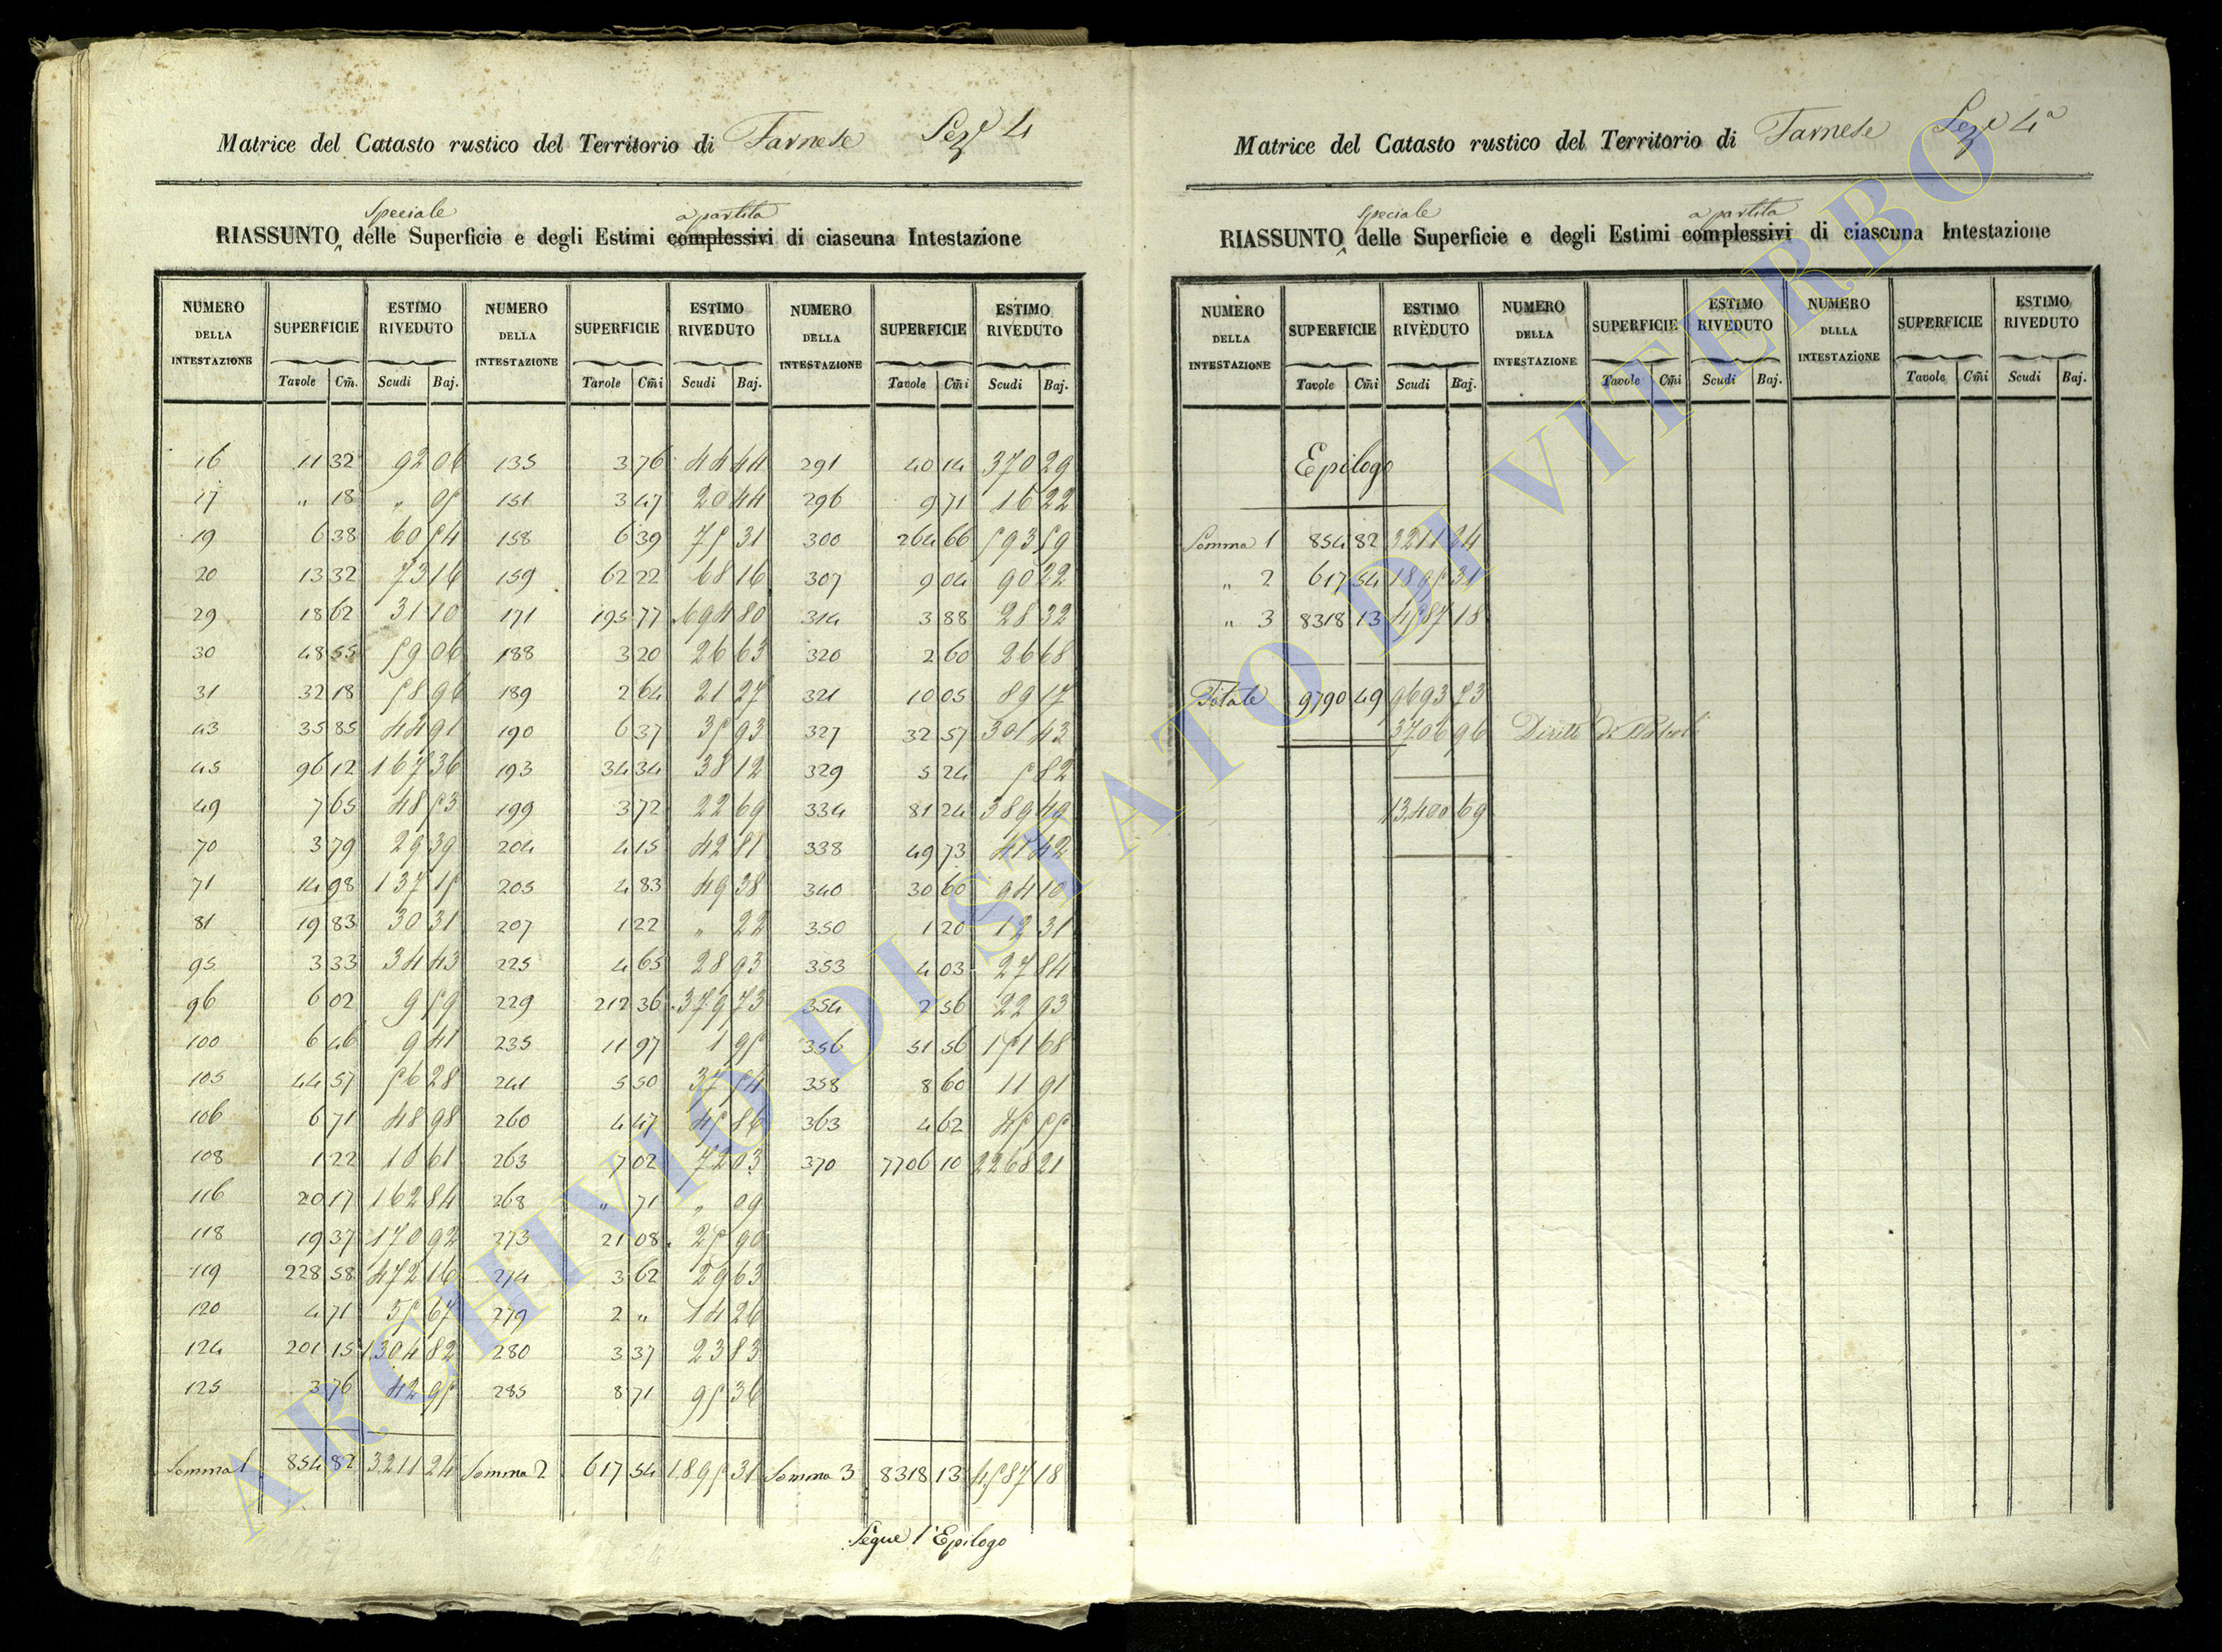 Matrice del Catasto rustico del Territorio di Farnese Sez.e 4
RIASSUNTO speciale delle Superficie e degli Estimi complessivi a partita di ciascuna Intestazione
NUMERO DELLA INTESTAZIONE SUPERFICIE ESTIMO RIVEDUTO NUMERO DELLA INTESTAZIONE SUPERFICIE ESTIMO RIVEDUTO NUMERO DELLA INTESTAZIONE SUPERFICIE ESTIMO RIVEDUTO
Tavole Cm̃. Scudi Baj. Tavole Cm̃i Scudi Baj. Tavole Cm̃i Scudi Baj.
16 11 32 92 06 135 3 76 44 44 291 40 14 370 29
17 „ 18 „ 05 151 3 47 20 44 296 9 71 16 22
19 6 38 60 54 158 6 39 75 31 300 264 66 593 59
20 13 32 73 16 159 62 22 68 16 307 9 04 90 22
29 18 62 31 10 171 195 77 694 80 314 3 88 28 32
30 48 55 59 06 188 3 20 26 63 320 2 60 26 68
31 32 18 58 96 189 2 64 21 27 321 10 05 89 17
43 35 85 44 91 190 6 37 35 93 327 32 57 301 43
45 96 12 167 36 193 34 34 38 12 329 5 24 5 82
49 7 65 48 53 199 3 72 22 69 334 81 24 389 49
70 3 79 29 39 204 4 15 42 81 338 49 73 41 42
71 14 98 137 15 205 4 83 49 38 340 30 60 94 10
81 19 83 30 31 207 1 22 „ 22 350 1 20 12 31
95 3 33 34 43 225 4 65 28 93 353 4 03 27 84
96 6 02 9 59 229 212 36 379 73 354 2 56 22 93
100 6 46 9 41 235 11 97 1 95 356 51 56 151 68
105 44 57 56 28 241 5 50 37 54 358 8 60 11 91
106 6 71 48 98 260 4 47 45 86 363 4 62 45 55
108 1 22 10 61 263 7 02 72 03 370 7706 10 2268 21
116 20 17 162 84 268 „ 71 „ 09
118 19 37 170 92 273 21 08 25 90
119 228 58 472 16 274 3 62 29 63
120 4 71 55 67 279 2 „ 14 26
124 201 15 1304 82 280 3 37 23 83
125 3 76 42 95 285 8 71 95 36
Somma 1 854 82 3211 24 Somma 2 617 54 1895 31 Somma 3 8318 13 4587 18
Segue l'Epilogo
Matrice del Catasto rustico del Territorio di Farnese Sez.e 4a
RIASSUNTO speciale delle Superficie e degli Estimi complessivi a partita di ciascuna Intestazione
NUMERO DELLA INTESTAZIONE SUPERFICIE ESTIMO RIVEDUTO NUMERO DELLA INTESTAZIONE SUPERFICIE ESTIMO RIVEDUTO NUMERO DLLLA INTESTAZIONE SUPERFICIE ESTIMO RIVEDUTO
Tavole Cm̃i Scudi Baj. Tavole Cm̃i Scudi Baj. Tavole Cm̃i Scudi Baj.
Epilogo
Somma 1 854 82 3211 24
„ 2 617 54 1895 31
„ 3 8318 13 4587 18
Totale 9790 49 9693 73
3706 96 Diritto di
13,400 69
ARCHIVIO DI STATO DI VITERBO